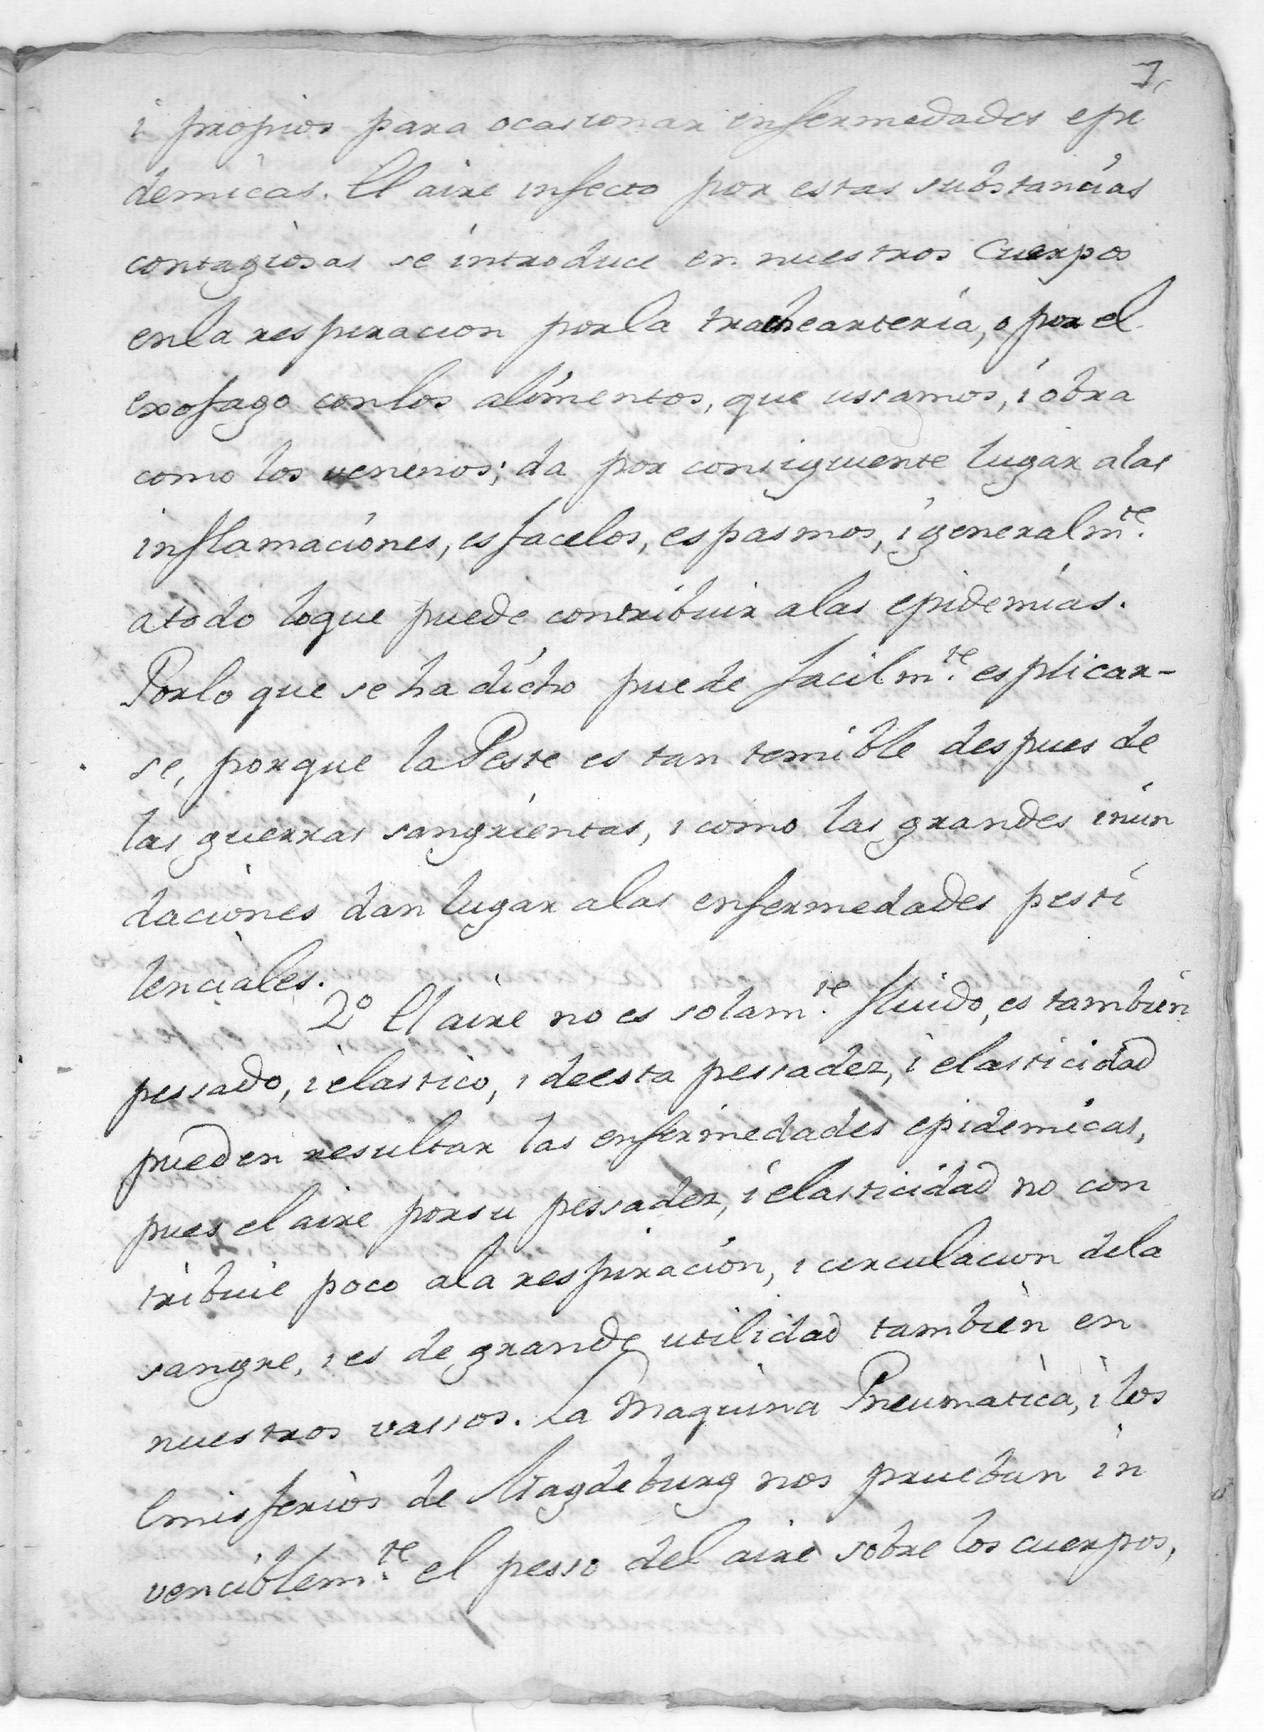 7,
i propios para ocasionar enfermedades epi
demicas. El aire infecto por estas substancias
contagiosas se introduce en nuestros Cuerpos
enla respiracion porla trachearteria, o por el
exofago conlos alimentos, que ussamos, i obra
como los venenos; da por consiguiente lugar alas
inflamaciones, esfacelos, espasmos, i generalm.te
atodo loque puede contribuir alas epidemias.
Porlo que se ha dicho puede facilm.te esplicar-
se, porque la Peste es tan temible despues de
las guerras sangrientas, i como las grandes inun
daciones dan lugar alas enfermedades pesti
lenciales.
2º El aire no es solam.te fluido, es tambien
pessado, i elastico, i deesta pessadez, i elasticidad
pueden resultar las enfermedades epidemicas,
pues el aire porsu pessadez, i elasticidad no con
tribuie poco ala respiracion, i circulacion dela
sangre, i es de grande utilidad tambien en
nuestros vassos. La Maquina Pneumatica, i los
Emisferios de Magdeburg nos prueban in
venciblem.te el pesso del aire sobre los cuerpos,